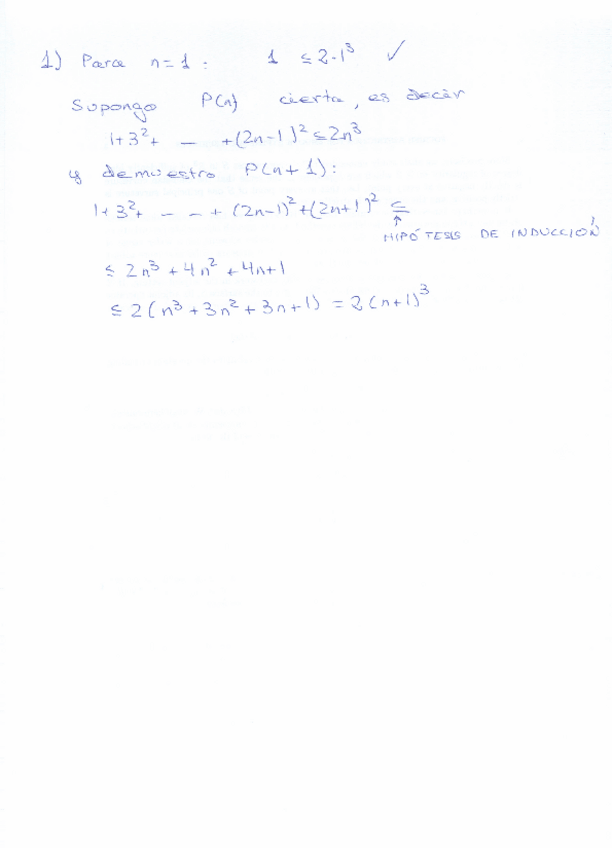 1) Para n=1: 1 ≤ 2·1³ ✓
Supongo P(n) cierta, es decir
1+3²+ — +(2n-1)² ≤ 2n³
y demuestro P(n+1):
1+3²+ - - + (2n-1)²+(2n+1)² ≤
↑
HIPÓTESIS DE INDUCCIÓN
≤ 2n³ + 4n² + 4n+1
≤ 2(n³+3n²+3n+1) = 2(n+1)³